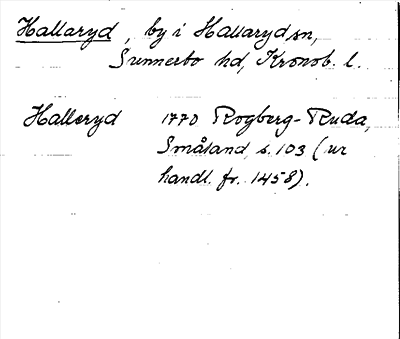 Hallaryd, by i Hallaryd sn,
Sunnerbo hd, Kronob. l.
Halleryd 1770 Rogberg-Ruda,
Småland, s. 103 (ur
handl. fr. 1458).